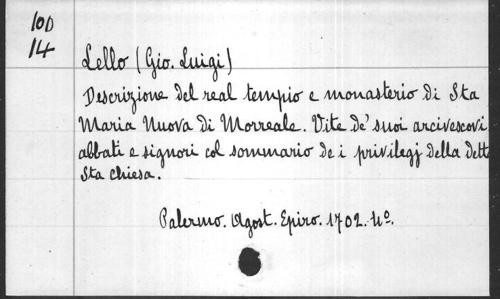 100
14
Lello (Gio. Luigi)
Descrizione del real tempio e monasterio di Sta
Maria Nuova di Morreale. Vite de' suoi arcivescovi
abbati e signori col sommario de i privilegj della dett
Sta Chiesa.
Palermo. Agost. Epiro. 1702. 4o.